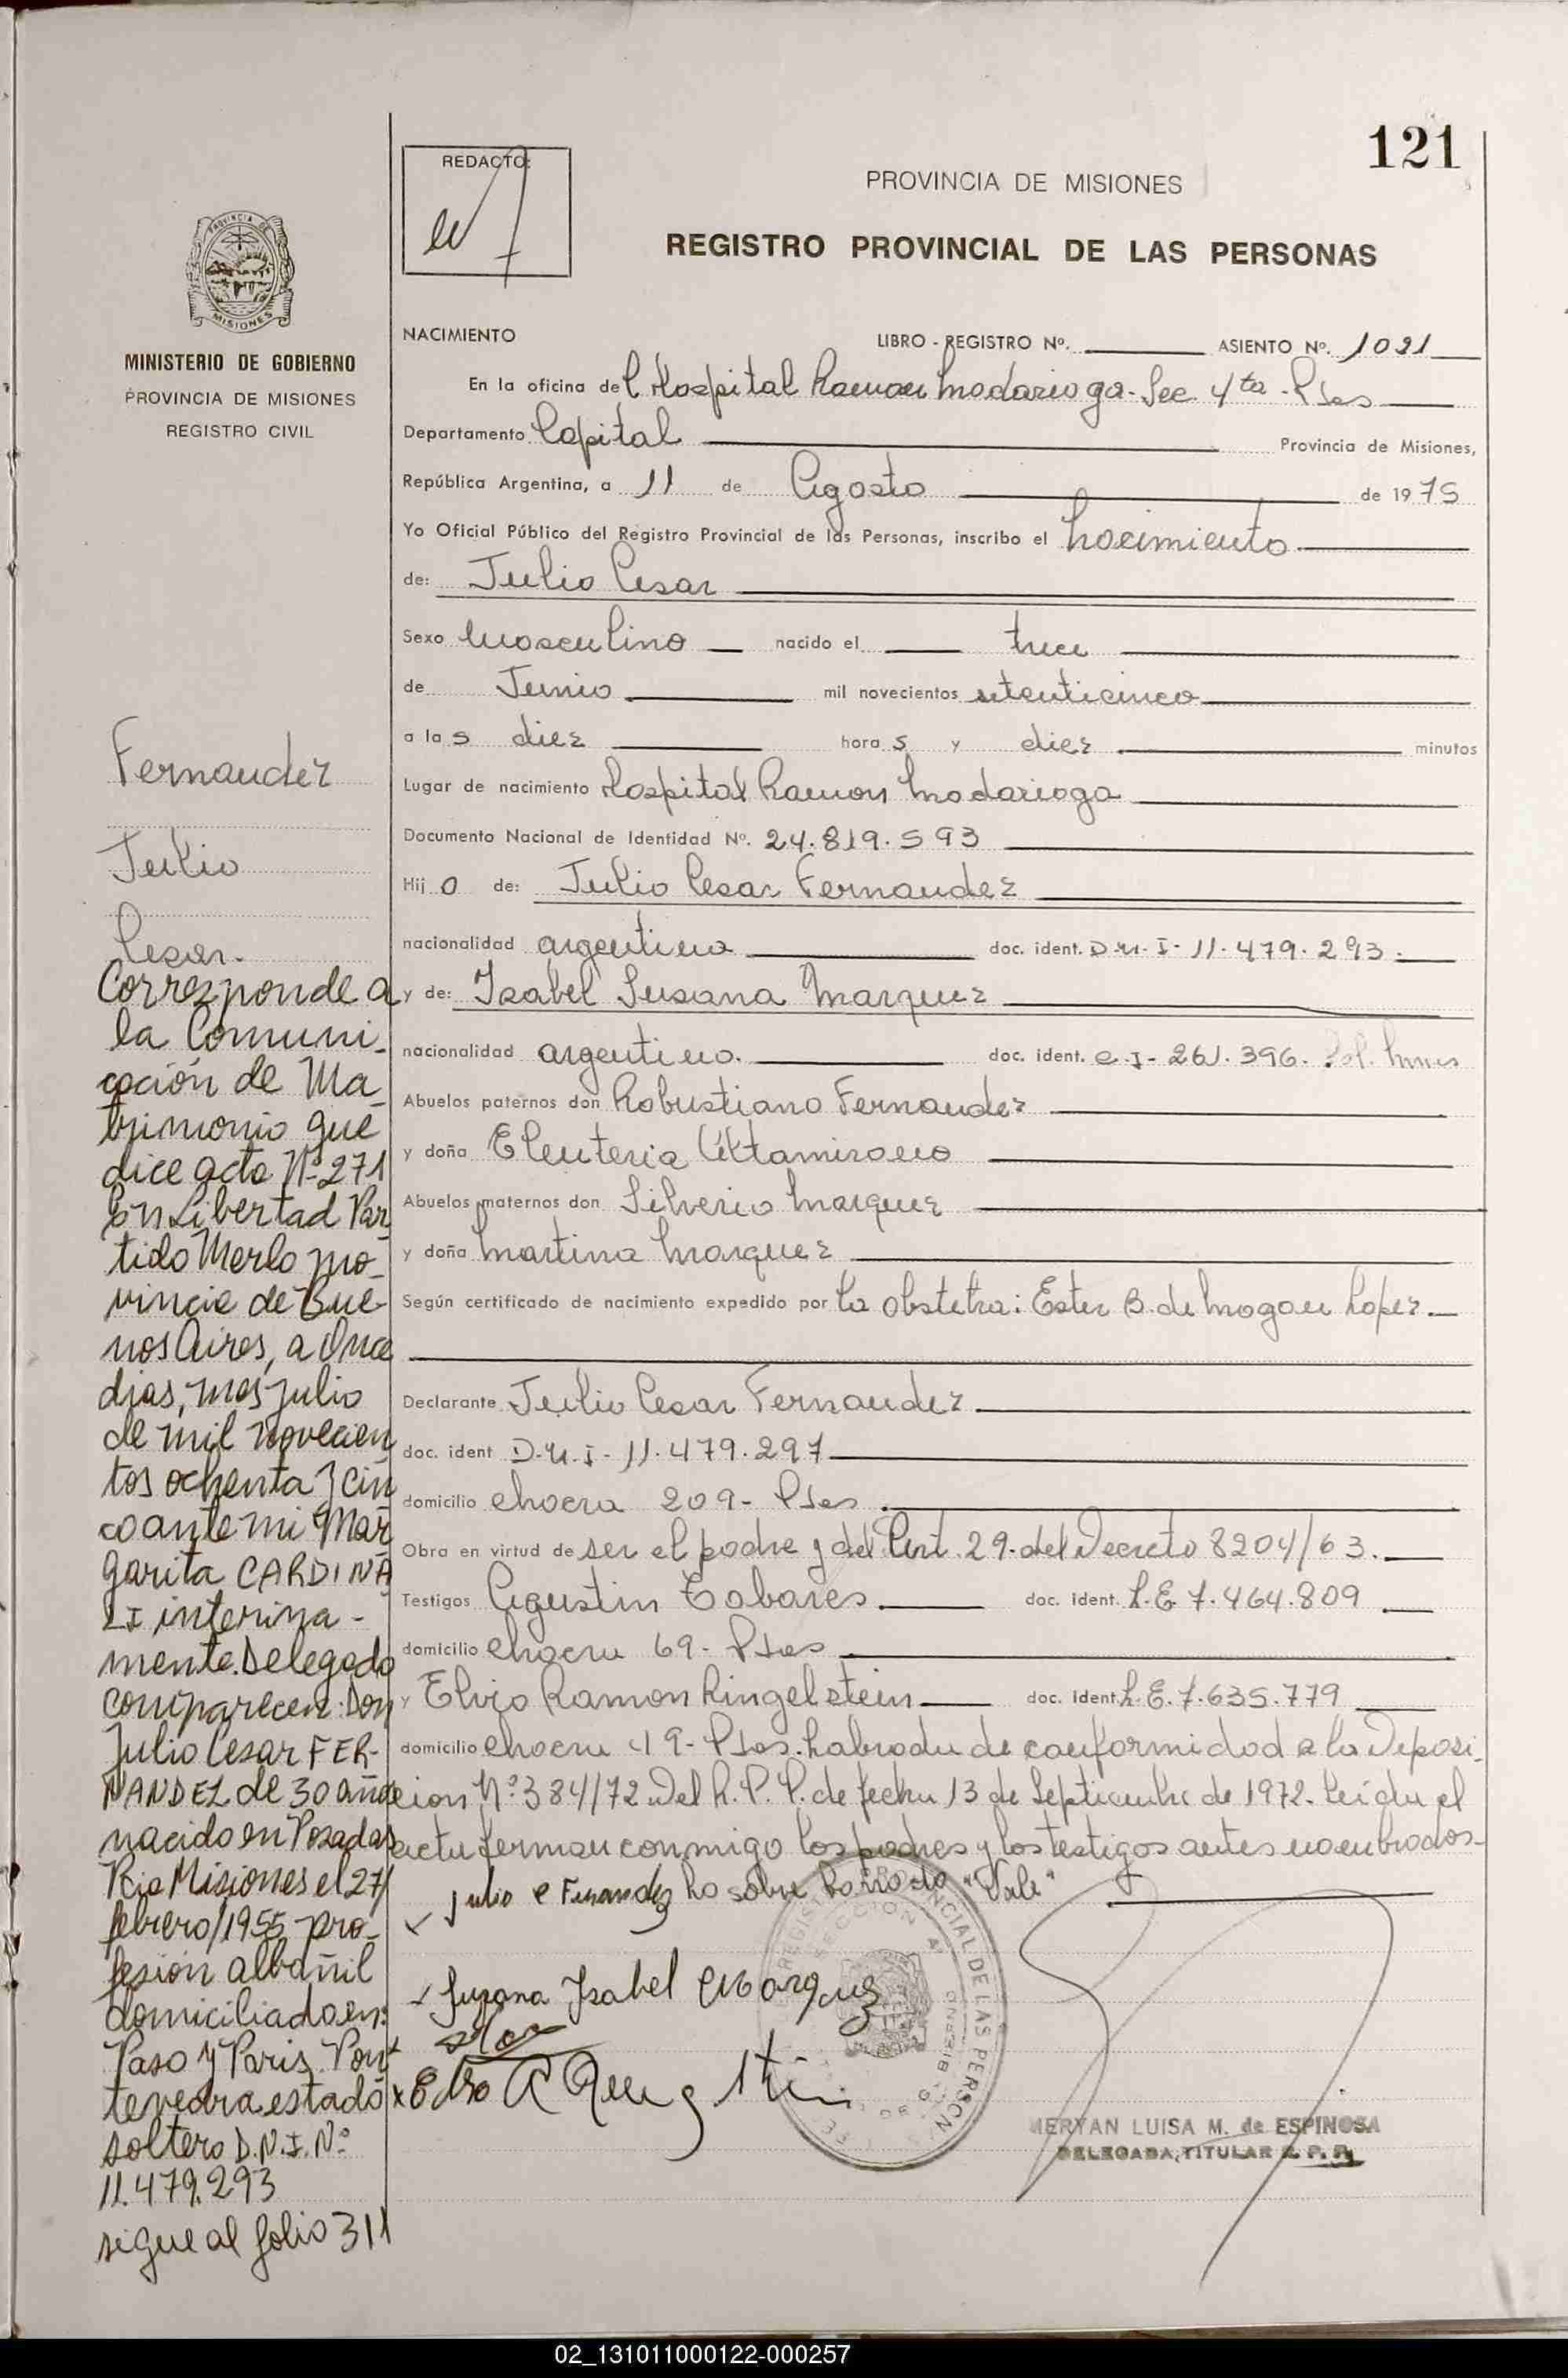 121
REDACTO:
PROVINCIA DE MISIONES
REGISTRO PROVINCIAL DE LAS PERSONAS
PROVINCIA DE
MISIONES
MINISTERIO DE GOBIERNO
PROVINCIA DE MISIONES
REGISTRO CIVIL
NACIMIENTO LIBRO - REGISTRO Nº. ASIENTO Nº. 1021
En la oficina del Hospital Ramon Madariaga - Sec 4ta - Pdas
Departamento Capital Provincia de Misiones,
República Argentina, a 11 de Agosto de 1975
Yo Oficial Público del Registro Provincial de las Personas, inscribo el Nacimiento
de: Julio Cesar
Sexo Masculino nacido el trece
de Junio mil novecientos setenticinco
a las diez horas y diez minutos
Lugar de nacimiento Hospital Ramon Madariaga
Documento Nacional de Identidad Nº. 24.819.593
Hijo de: Julio Cesar Fernandez
nacionalidad argentina doc. ident. D.N.I- 11.479.293.
y de: Isabel Susana Marquez
nacionalidad argentina. doc. ident. C.I- 261.396. Pol. Mnes
Abuelos paternos don Robustiano Fernandez
y doña Eleuteria Altamirano
Abuelos maternos don Silverio Marquez
y doña Martina Marquez
Según certificado de nacimiento expedido por la obstetra: Ester B. de Lopez.
Declarante Julio Cesar Fernandez
doc. ident D.N.I- 11.479.297
domicilio chacra 209- Pdas
Obra en virtud de ser el padre y del Art. 29. del Decreto 8204/63.
Testigos Agustin Tabares doc. ident. L.E. 7.464.809
domicilio chacra 69- Pdas
y Elvio Ramon Ringelstein doc. ident. L.E. 7.635.779
domicilio chacra 19- Pdas. Labrada de conformidad a la Disposi-
cion Nº 384/72 del R.P.P. de fecha 13 de Septiembre de 1972. Leida el
acta firman conmigo los padres y los testigos antes nombrados-
Julio C Fernandez sobre borrado "Vale"
Susana Isabel Marquez
REGISTRO PROVINCIAL DE LAS PERSONAS
SECCION 4
MERYAN LUISA M. de ESPINOSA
DELEGADA TITULAR R. P. P.
Fernandez
Julio
Cesar.
Corresponde a
la Comuni-
cación de Ma
trimonio que
dice acta Nº 271
En Libertad Par
tido Merlo pro-
vincia de Bue-
nos Aires, a Once
dias, mes julio
de mil novecien
tos ochenta y cin
co ante mi Mar
garita CARDINA
LI interina-
mente. Delegado
comparecen: Don
Julio Cesar FER-
NANDEZ de 30 años
nacido en Posadas
Pcia Misiones el 27/
febrero/1955- pro-
fesión albañil
domiciliado en:
Paso y Paris Pon-
tevedra estado
soltero D.N.I. Nº
11.479.293
sigue al folio 311
02_131011000122-000257